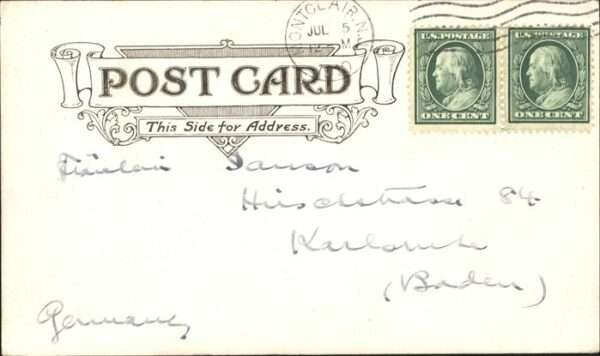 MONTCLAIR, N.J.
JUL 5
12 M
POST CARD
This Side for Address.
U.S. POSTAGE
ONE CENT
U.S. POSTAGE
ONE CENT
Fräulein Sanson
Hirschstrasse 84
Karlsruhe
(Baden)
Germany